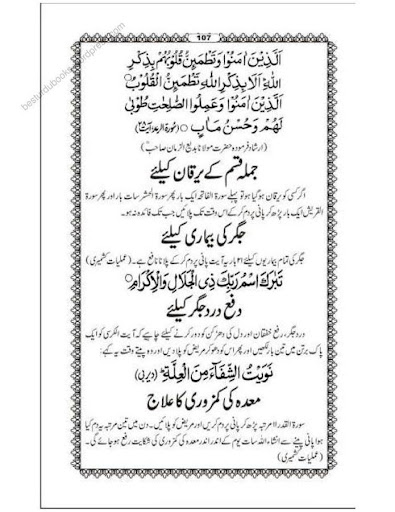 107
besturdubooks.wordpress.com
اَلَّذِيْنَ اٰمَنُوْا وَتَطْمَئِنُّ قُلُوْبُهُمْ بِذِكْرِ
اللّٰهِ اَلَا بِذِكْرِ اللّٰهِ تَطْمَئِنُّ الْقُلُوْبُ ○
اَلَّذِيْنَ اٰمَنُوْا وَعَمِلُوا الصّٰلِحٰتِ طُوْبٰى
لَهُمْ وَحُسْنُ مَاٰبٍ ○ (سورۃ الرعد
(ارشاد فرمودہ حضرت مولانا بدیع الزمان صاحبؒ)
جملہ قسم کے یرقان کیلئے
اگر کسی کو یرقان ہو گیا ہو تو پہلے سورۃ الفاتحہ ایک بار پھر سورۃ الحشر سات بار اور پھر سورۃ
القریش ایک بار پڑھ کر پانی پر دم کر کے اس وقت تک پلائیں جب تک فائدہ نہ ہو۔
جگر کی بیماری کیلئے
جگر کی تمام بیماریوں کیلئے ۲۱ بار یہ آیت پانی پر دم کر کے پلانا نافع ہے۔ (عملیات کشمیری)
تَبٰرَكَ اسْمُ رَبِّكَ ذِى الْجَلَالِ وَالْاِكْرَامِ ○
دفع درد جگر کیلئے
درد جگر، رفع خفقان اور دل کی دھڑکن کو دور کرنے کیلئے چاہیے کہ آیت الکرسی کو ایک
پاک برتن میں تین بار لکھیں اور پھر اس کو دھو کر مریض کو پلا دیں اور وہ پیتے وقت یہ کہے:
نَوَيْتُ الشِّفَآءَ مِنَ الْعِلَّةِ (دیربی)
معدہ کی کمزوری کا علاج
سورۃ القدر ۱۱ مرتبہ پڑھ کر پانی پر دم کریں اور مریض کو پلائیں۔ دن میں تین مرتبہ یہ دم کیا
ہوا پانی پینے سے انشاء اللہ سات یوم کے اندر اندر معدہ کی کمزوری کی شکایت رفع ہو جائے گی۔
(عملیات کشمیری)